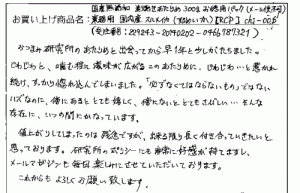 国産無添加 業務用あたりめ 300g お徳用パック(メール便不可)
お買い上げ商品名: 業務用 国内産 スルメイカ(するめいか)【RCP】chi-005
(受注番号: 209243-20140202-0966787321)
おつまみ研究所のあたりめと出会ってから早1年と少しがたちました。
じわじわと、噛む程に旨味が広がるこのあたりめに、じわじわ…と惹かれ
続け、すっかり惚れ込んでしまいました。「必ずなくてはならないもの」ではない
ハズなのに、傍にあるととても嬉しく、傍にないととてもさびしい…そんな
存在に、いつの間にかなっています。
値上がりしてしまったのは残念ですが、出来る限り長く付き合っていきたいと
思っております。研究所のポリシーにも非常に好感が持てますし、
メールマガジンも毎回楽しみにさせていただいております。
これからもよろしくお願い致します。